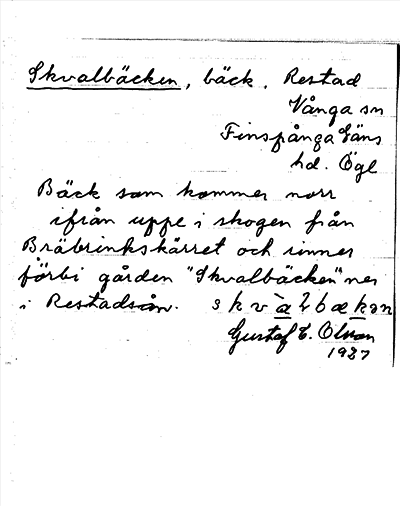 Skvalbäcken, bäck. Restad
Vånga sn
Finspånga läns
hd. Ögl
Bäck som kommer norr
ifrån uppe i skogen från
Bräbrinkskärret och rinner
förbi gården "Skvalbäcken" ner
i Restadsån. skvàlbækən
Gustaf E. Olson
1937